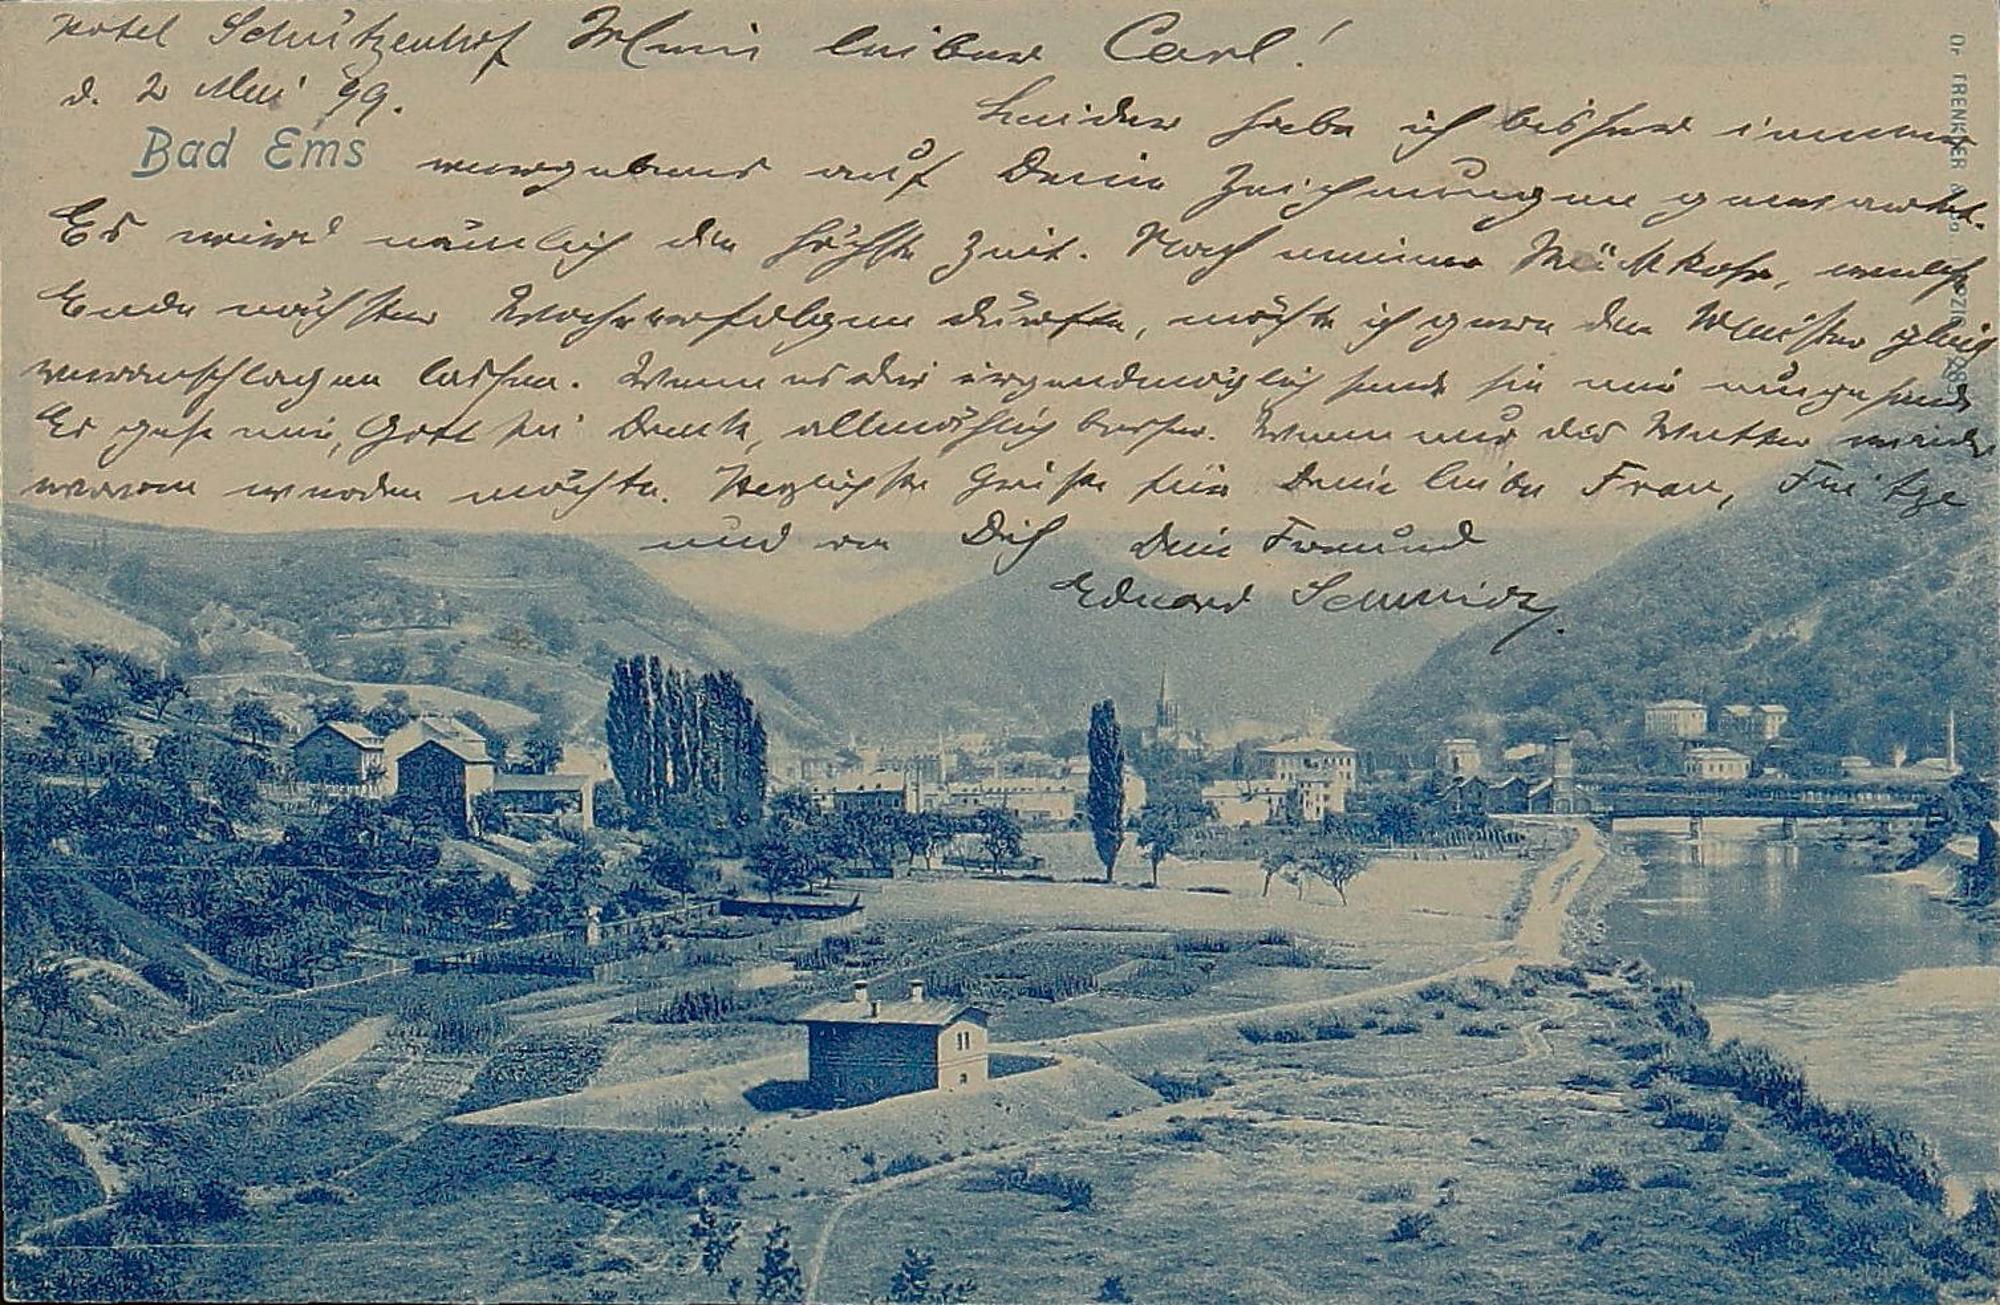 Hotel Schützenhof Mein lieber Carl!
d. 2 Mai 99.
Leider habe ich bisher immer
Bad Ems
vergebens auf Deine Zeichnungen gewartet.
Es wird nämlich die höchste Zeit. Nach meiner Rückkehr, welche
Ende nächster Woche erfolgen dürfte, möchte ich gern den Meister gleich
veranschlagen lassen. Wenn es Dir irgendmöglich sende sie mir umgehend
Es geht mir, Gott sei Dank, allmählich besser. Wenn nur das Wetter wieder
warm werden möchte. Herzlichste Grüße für Deine liebe Frau,
und an Dich Dein Freund
Eduard Schmidt.
Dr. TRENKLER & Co.